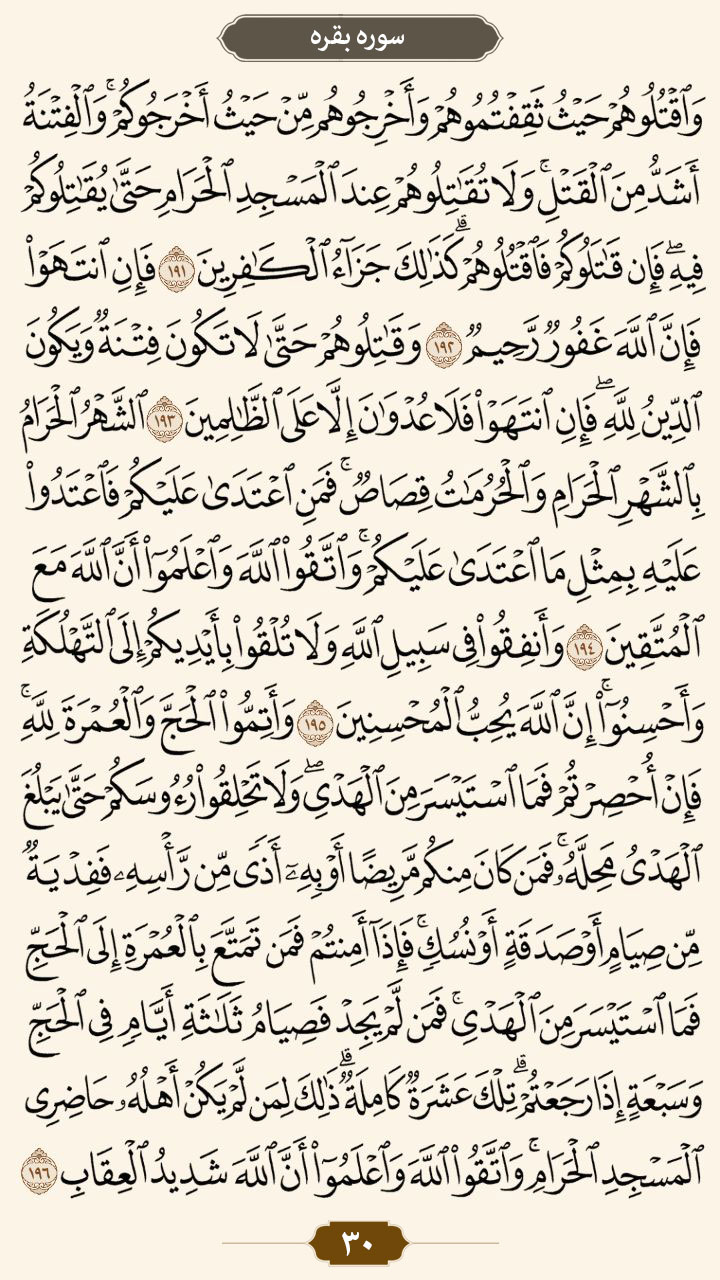 سوره بقره
وَٱقۡتُلُوهُمۡ حَيۡثُ ثَقِفۡتُمُوهُمۡ وَأَخۡرِجُوهُم مِّنۡ حَيۡثُ أَخۡرَجُوكُمۡۚ وَٱلۡفِتۡنَةُ
أَشَدُّ مِنَ ٱلۡقَتۡلِۚ وَلَا تُقَٰتِلُوهُمۡ عِندَ ٱلۡمَسۡجِدِ ٱلۡحَرَامِ حَتَّىٰ يُقَٰتِلُوكُمۡ
فِيهِۖ فَإِن قَٰتَلُوكُمۡ فَٱقۡتُلُوهُمۡۗ كَذَٰلِكَ جَزَآءُ ٱلۡكَٰفِرِينَ ١٩١ فَإِنِ ٱنتَهَوۡاْ
فَإِنَّ ٱللَّهَ غَفُورٞ رَّحِيمٞ ١٩٢ وَقَٰتِلُوهُمۡ حَتَّىٰ لَا تَكُونَ فِتۡنَةٞ وَيَكُونَ
ٱلدِّينُ لِلَّهِۖ فَإِنِ ٱنتَهَوۡاْ فَلَا عُدۡوَٰنَ إِلَّا عَلَى ٱلظَّٰلِمِينَ ١٩٣ ٱلشَّهۡرُ ٱلۡحَرَامُ
بِٱلشَّهۡرِ ٱلۡحَرَامِ وَٱلۡحُرُمَٰتُ قِصَاصٞۚ فَمَنِ ٱعۡتَدَىٰ عَلَيۡكُمۡ فَٱعۡتَدُواْ
عَلَيۡهِ بِمِثۡلِ مَا ٱعۡتَدَىٰ عَلَيۡكُمۡۚ وَٱتَّقُواْ ٱللَّهَ وَٱعۡلَمُوٓاْ أَنَّ ٱللَّهَ مَعَ
ٱلۡمُتَّقِينَ ١٩٤ وَأَنفِقُواْ فِي سَبِيلِ ٱللَّهِ وَلَا تُلۡقُواْ بِأَيۡدِيكُمۡ إِلَى ٱلتَّهۡلُكَةِ
وَأَحۡسِنُوٓاْۚ إِنَّ ٱللَّهَ يُحِبُّ ٱلۡمُحۡسِنِينَ ١٩٥ وَأَتِمُّواْ ٱلۡحَجَّ وَٱلۡعُمۡرَةَ لِلَّهِۚ
فَإِنۡ أُحۡصِرۡتُمۡ فَمَا ٱسۡتَيۡسَرَ مِنَ ٱلۡهَدۡيِۖ وَلَا تَحۡلِقُواْ رُءُوسَكُمۡ حَتَّىٰ يَبۡلُغَ
ٱلۡهَدۡيُ مَحِلَّهُۥۚ فَمَن كَانَ مِنكُم مَّرِيضًا أَوۡ بِهِۦٓ أَذٗى مِّن رَّأۡسِهِۦ فَفِدۡيَةٞ
مِّن صِيَامٍ أَوۡ صَدَقَةٍ أَوۡ نُسُكٖۚ فَإِذَآ أَمِنتُمۡ فَمَن تَمَتَّعَ بِٱلۡعُمۡرَةِ إِلَى ٱلۡحَجِّ
فَمَا ٱسۡتَيۡسَرَ مِنَ ٱلۡهَدۡيِۚ فَمَن لَّمۡ يَجِدۡ فَصِيَامُ ثَلَٰثَةِ أَيَّامٖ فِي ٱلۡحَجِّ
وَسَبۡعَةٍ إِذَا رَجَعۡتُمۡۗ تِلۡكَ عَشَرَةٞ كَامِلَةٞۗ ذَٰلِكَ لِمَن لَّمۡ يَكُنۡ أَهۡلُهُۥ حَاضِرِي
ٱلۡمَسۡجِدِ ٱلۡحَرَامِۚ وَٱتَّقُواْ ٱللَّهَ وَٱعۡلَمُوٓاْ أَنَّ ٱللَّهَ شَدِيدُ ٱلۡعِقَابِ ١٩٦
۳۰